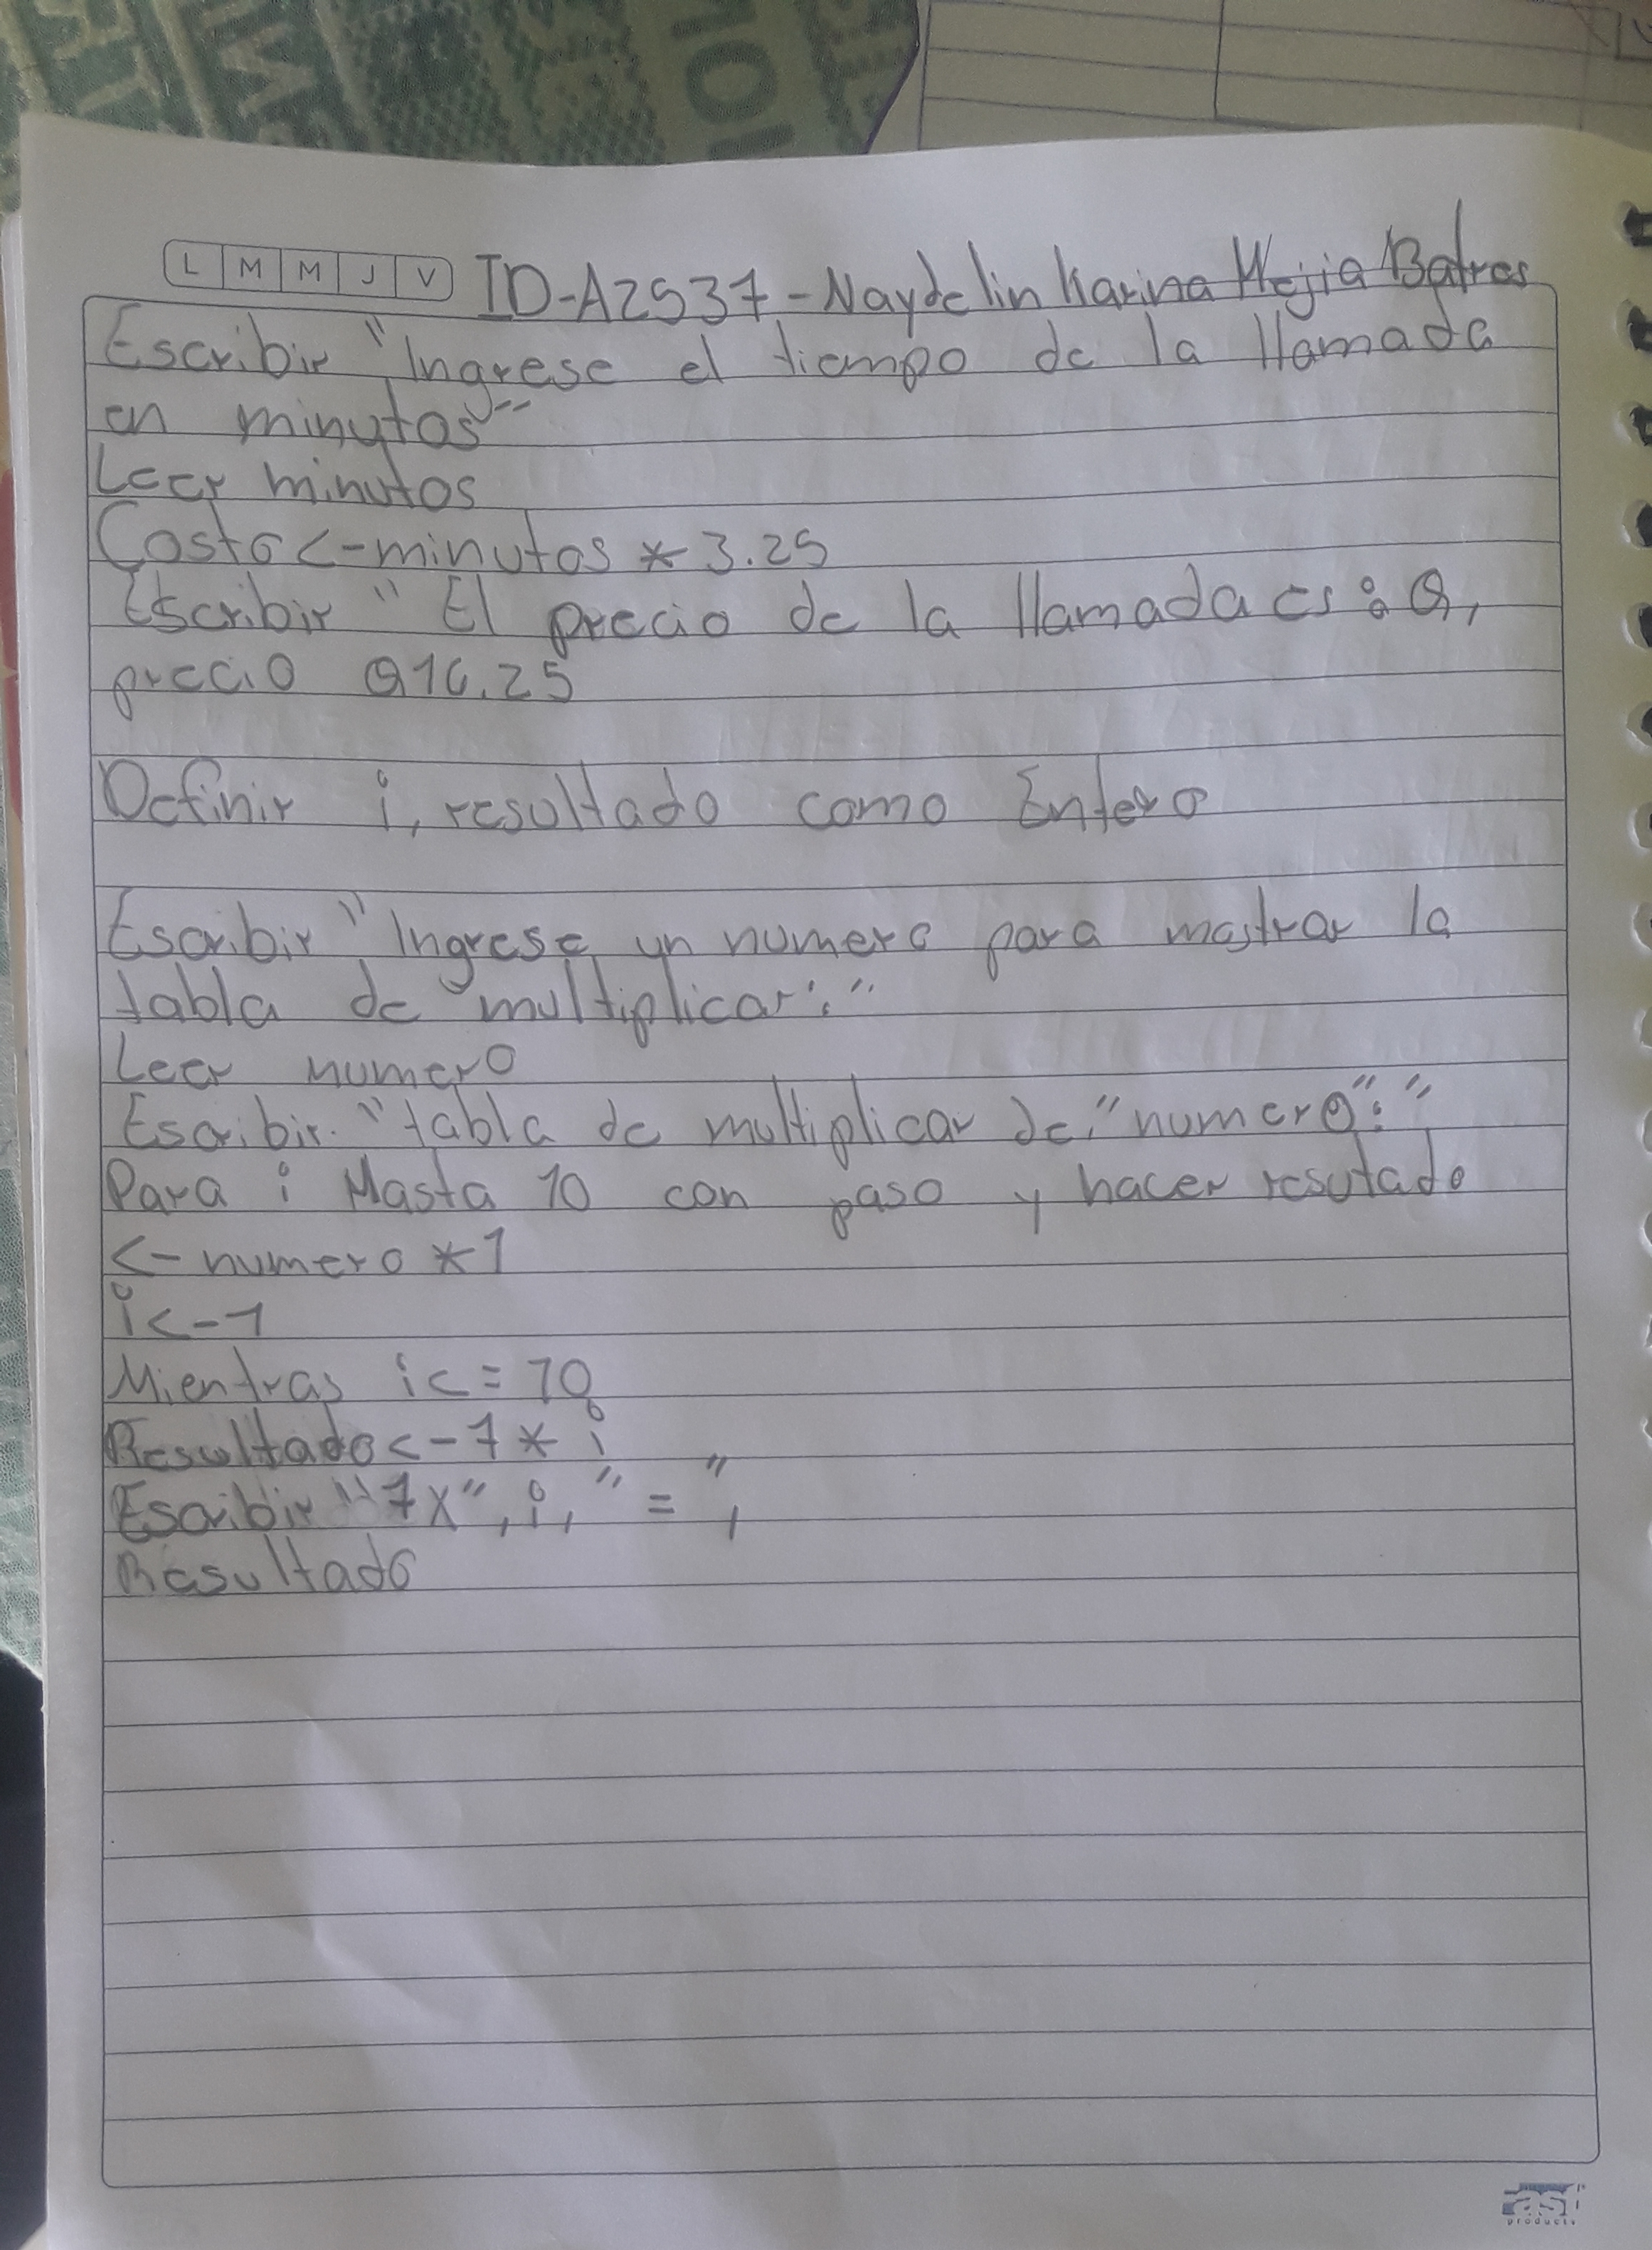 L M M J V ID-A2537-Naydelin Karina Mejia Batres
Escribir "Ingrese el tiempo de la llamada
en minutos"
Leer minutos
Costo <-minutos * 3.25
Escribir "El precio de la llamada es: Q,
precio Q16.25
Definir i, resultado como Entero
Escribir "Ingrese un numero para mostrar la
tabla de multiplicar:"
Leer numero
Escribir. "tabla de multiplicar de:"numero":"
Para i Hasta 10 con paso y hacer resutado
<- numero *1
i<-1
Mientras i<=10
Resultado<-7* i
Escribir "7x", i, "=",
Resultado
fast
products